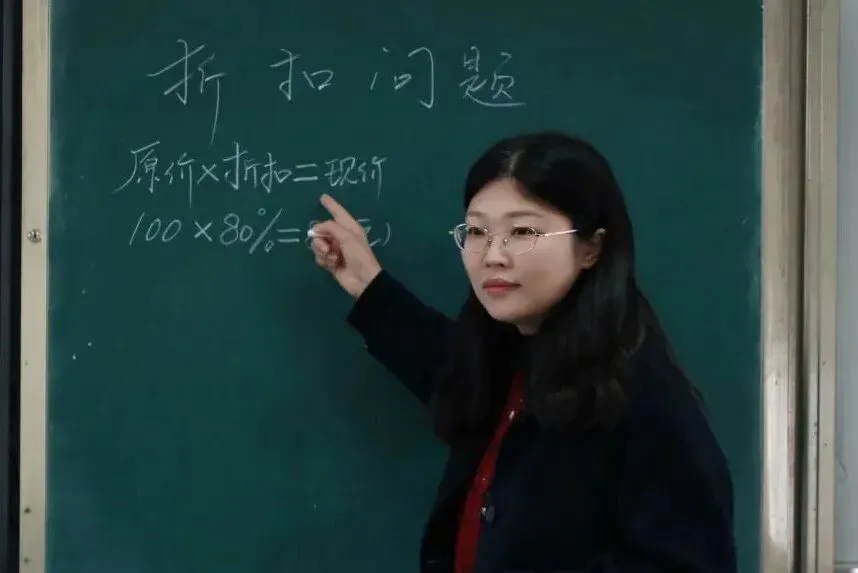 折扣问题
原价×折扣=现价
100×80%=8 元)